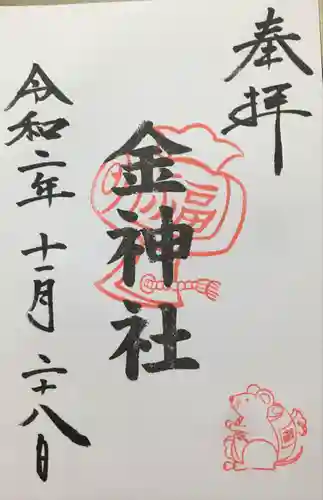 奉拝
金神社
令和二年十一月二十八日
福